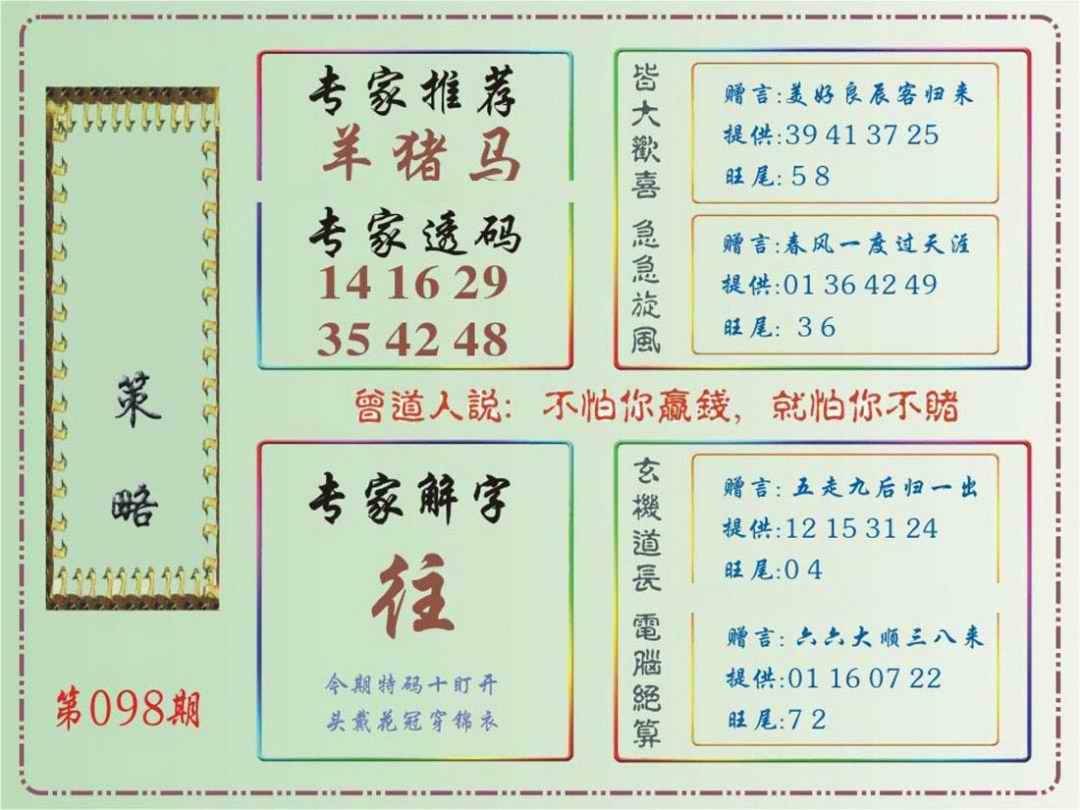 策略
第098期
专家推荐
羊猪马
专家透码
14 16 29
35 42 48
皆大歡喜
赠言:美好良辰客归来
提供:39 41 37 25
旺尾: 5 8
急急旋風
赠言:春风一度过天涯
提供:01 36 42 49
旺尾: 3 6
曾道人説: 不怕你贏錢, 就怕你不賭
专家解字
往
今期特码十盯开
头戴花冠穿锦衣
玄機道長
赠言: 五走九后归一出
提供:12 15 31 24
旺尾:0 4
電腦絕算
赠言: 六六大顺三八来
提供:01 16 07 22
旺尾:7 2